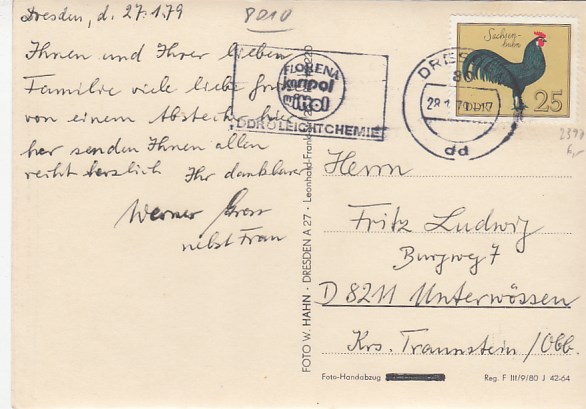 Dresden, d. 27.1.79
8010
Ihnen und Ihrer lieben
Familie viel liebe Grüße
von einem Abstecher hier
her senden Ihnen allen
recht herzlich Ihr dankbarer
Werner
nebst Frau
FLORENA
karipol
DDR LEICHTCHEMIE
DRESDEN
28.1.79
dd
Sachsen-
huhn
DDR
25
Herrn
Fritz Ludwig
Burgweg 7
D 8211 Unterwössen
Krs. Traunstein / Obb.
FOTO W. HAHN · DRESDEN A 27 · Leonhard-Frank-
Foto-Handabzug
Reg. F III/9/80 J 42-64